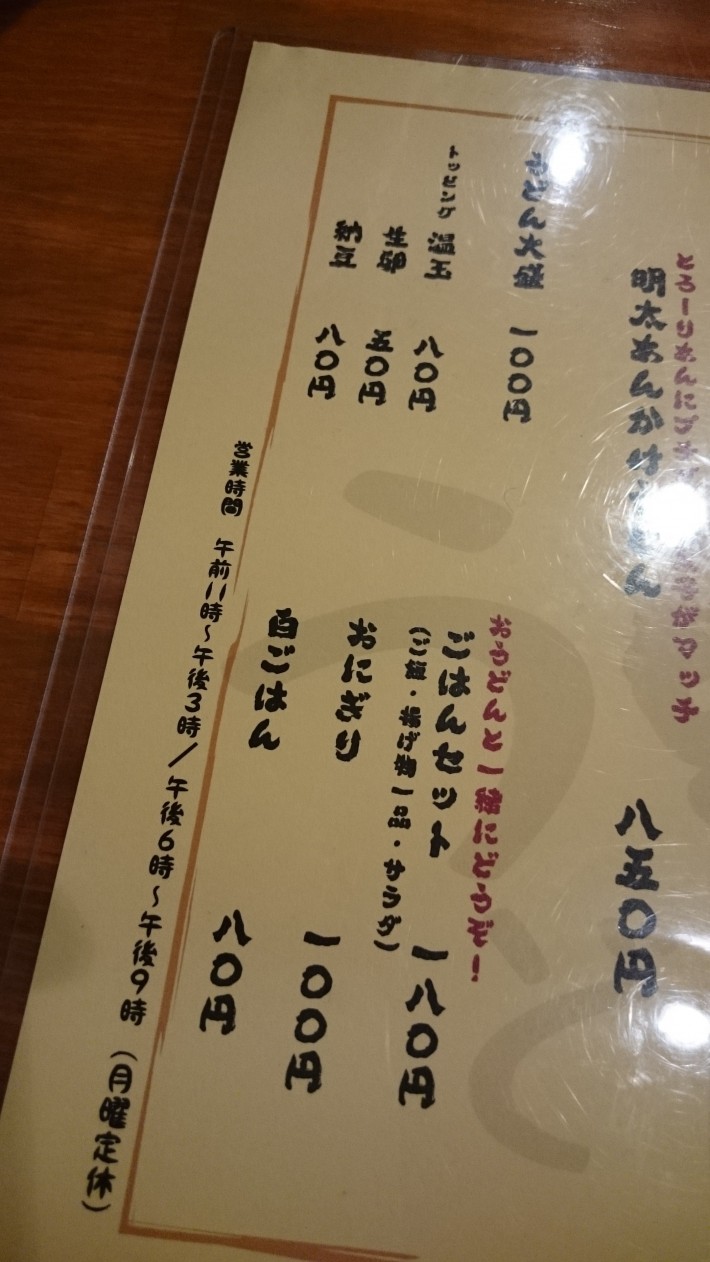 とろーりあんに
明太あんかけうどん 八五〇円
うどん大盛 一〇〇円
トッピング 温玉 八〇円
生卵 五〇円
納豆 八〇円
おうどんと一緒にどうぞ！
ごはんセット 一八〇円
（ご飯・揚げ物一品・サラダ）
おにぎり 一〇〇円
白ごはん 八〇円
営業時間 午前11時～午後3時/午後6時～午後9時（月曜定休）